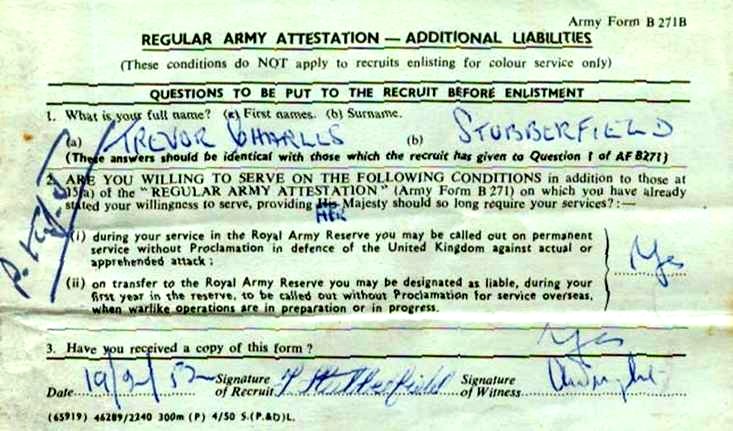 Army Form B 271B
REGULAR ARMY ATTESTATION — ADDITIONAL LIABILITIES
(These conditions do NOT apply to recruits enlisting for colour service only)
QUESTIONS TO BE PUT TO THE RECRUIT BEFORE ENLISTMENT
1. What is your full name? (a) First names. (b) Surname.
(a) TREVOR CHARLES (b) STUBBERFIELD
(These answers should be identical with those which the recruit has given to Question 1 of AF B271)
2. ARE YOU WILLING TO SERVE ON THE FOLLOWING CONDITIONS in addition to those at
15(a) of the "REGULAR ARMY ATTESTATION" (Army Form B 271) on which you have already
stated your willingness to serve, providing His Majesty should so long require your services? :—
HER
(i) during your service in the Royal Army Reserve you may be called out on permanent
service without Proclamation in defence of the United Kingdom against actual or
apprehended attack ;
Yes
(ii) on transfer to the Royal Army Reserve you may be designated as liable, during your
first year in the reserve, to be called out without Proclamation for service overseas,
when warlike operations are in preparation or in progress.
3. Have you received a copy of this form ? Yes
Date 19/9/52 Signature of Recruit T Stubberfield Signature of Witness
(65919) 46289/2240 300m (P) 4/50 S.(P.&D)L.